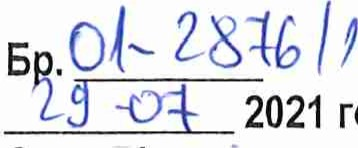 Бр. 01-2876/1
29-07 2021 г